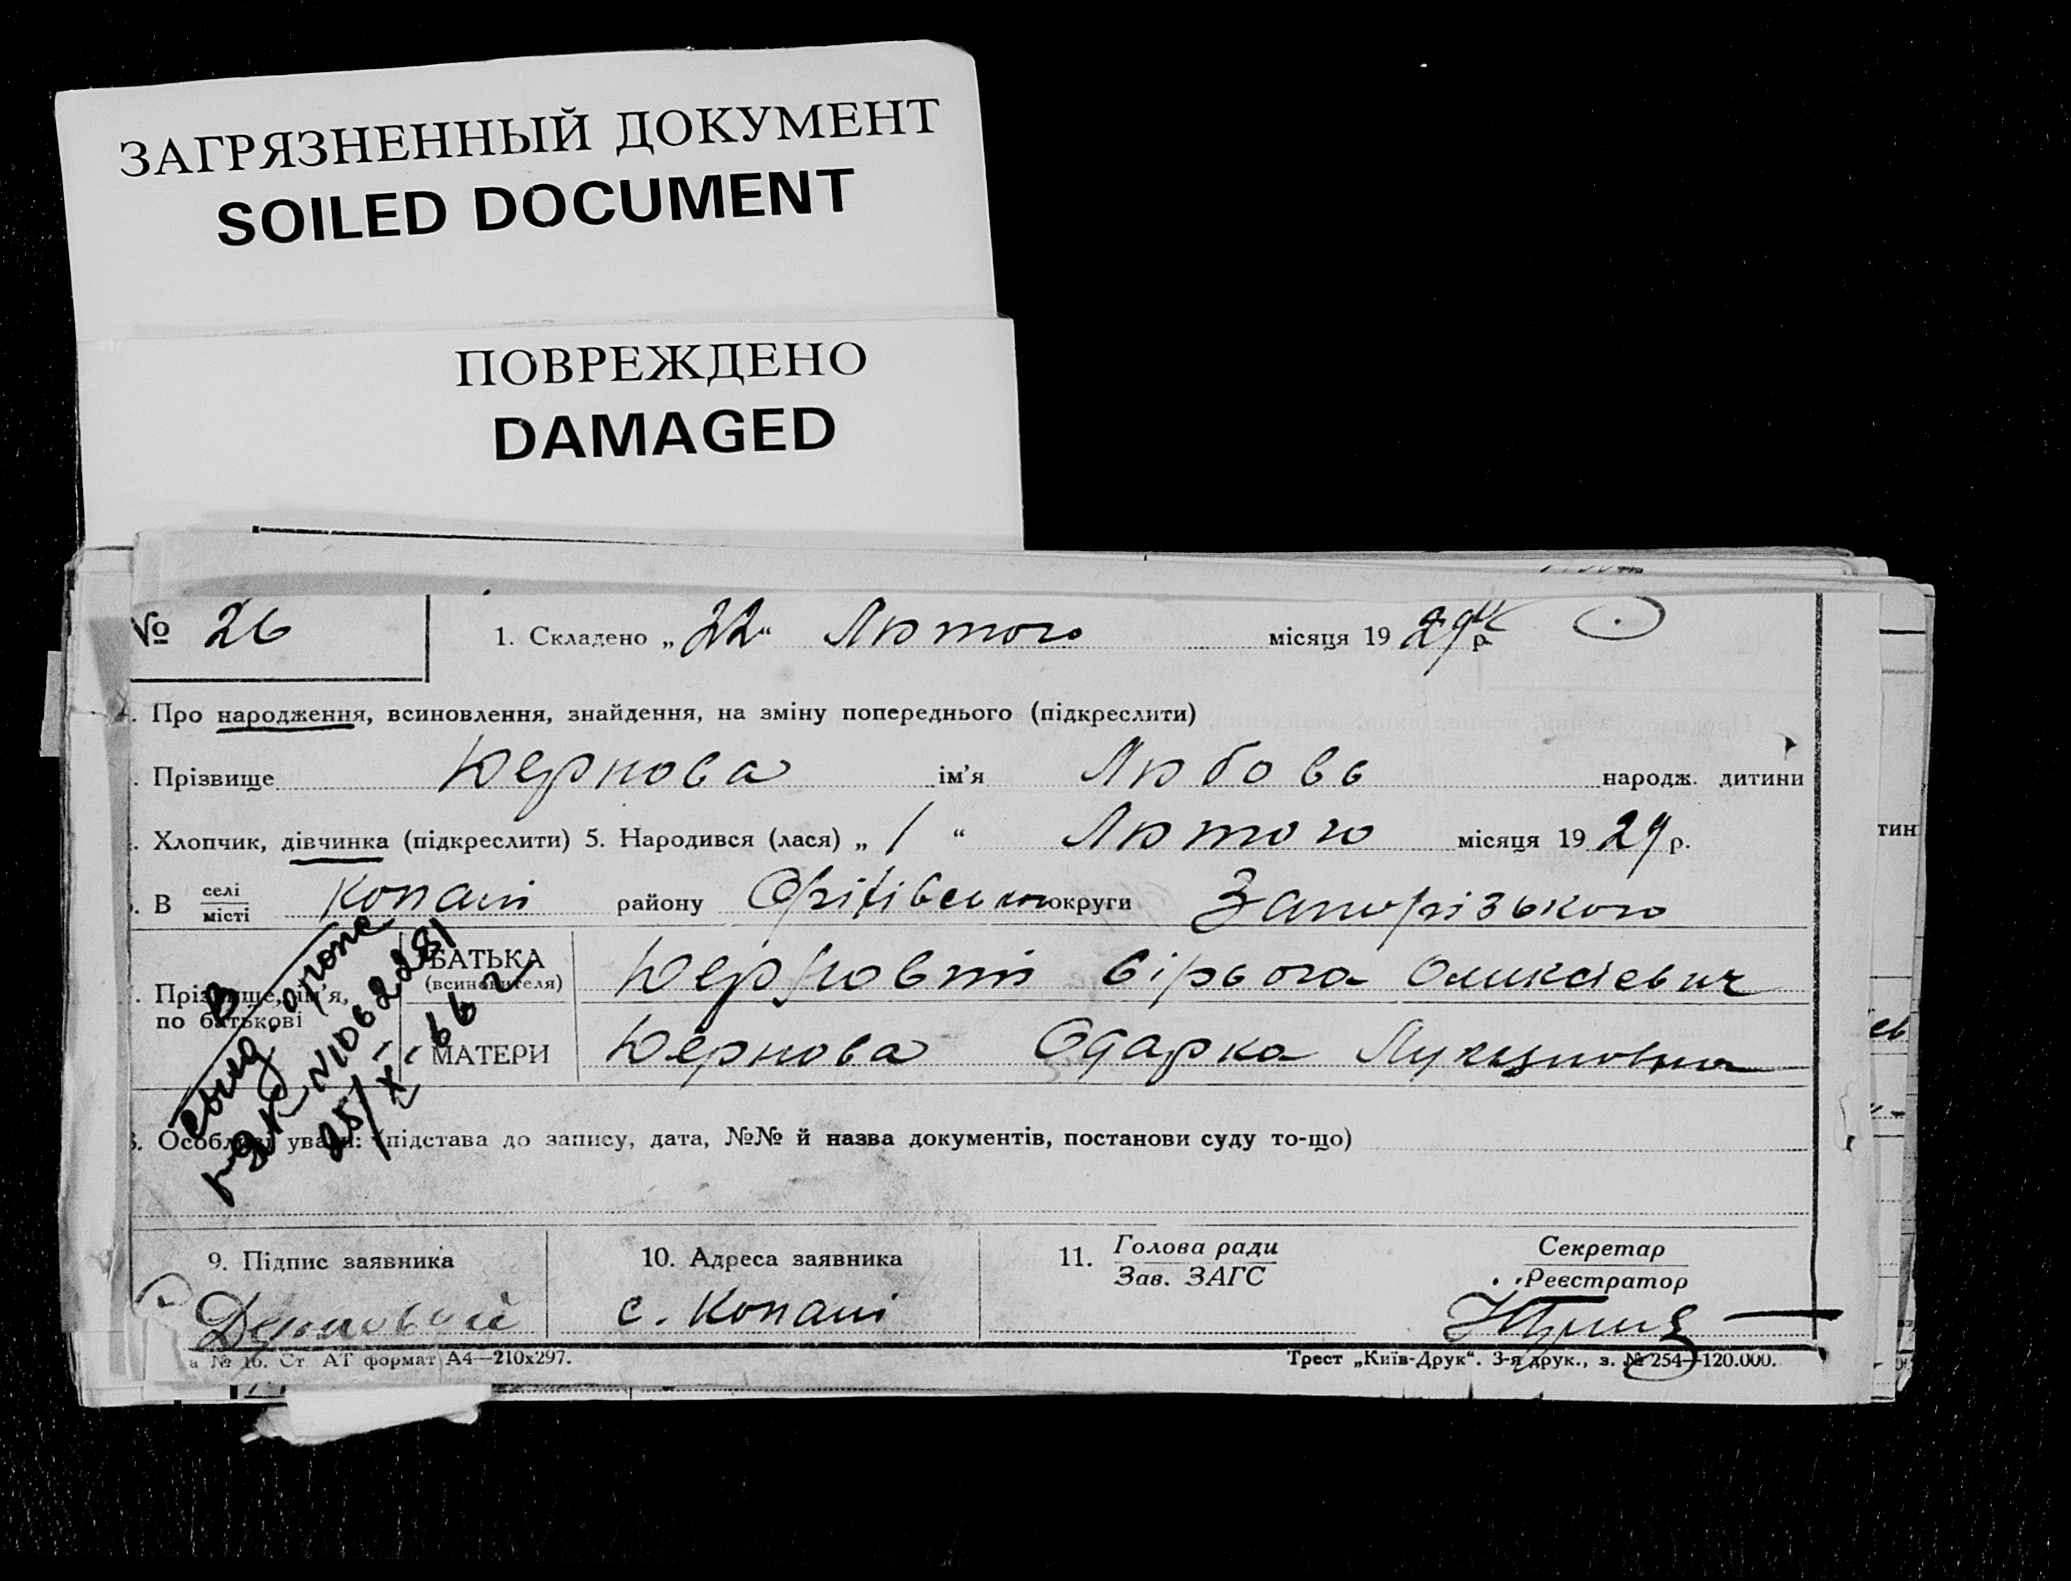 ЗАГРЯЗНЕННЫЙ ДОКУМЕНТ
SOILED DOCUMENT
ПОВРЕЖДЕНО
DAMAGED
№ 26
1. Складено „22“ Лютого місяця 1929 р.
Про народження, всиновлення, знайдення, на зміну попереднього (підкреслити)
Прізвище Дернова ім’я Любовь народж. дитини
Хлопчик, дівчинка (підкреслити) 5. Народився (лася) „1“ Лютого місяця 1929 р.
В селі
місті Копані району Оріхівського округи Запорізького
Прізвище, ім’я,
по батькові
БАТЬКА
(всиновителя) Дерновий Сірьога Оликсієвич
МАТЕРИ Дернова Одарка
В
№ 062281
25/X 66 г
Особливі уваги: (підстава до запису, дата, №№ й назва документів, постанови суду то-що)
9. Підпис заявника
Дерновий
10. Адреса заявника
с. Копані
11. Голова ради
Зав. ЗАГС
Секретар
Реєстратор
а № 16. Ст. АТ формат А4—210х297.
Трест „Київ-Друк“. 3-я друк., з. № 254—120.000.